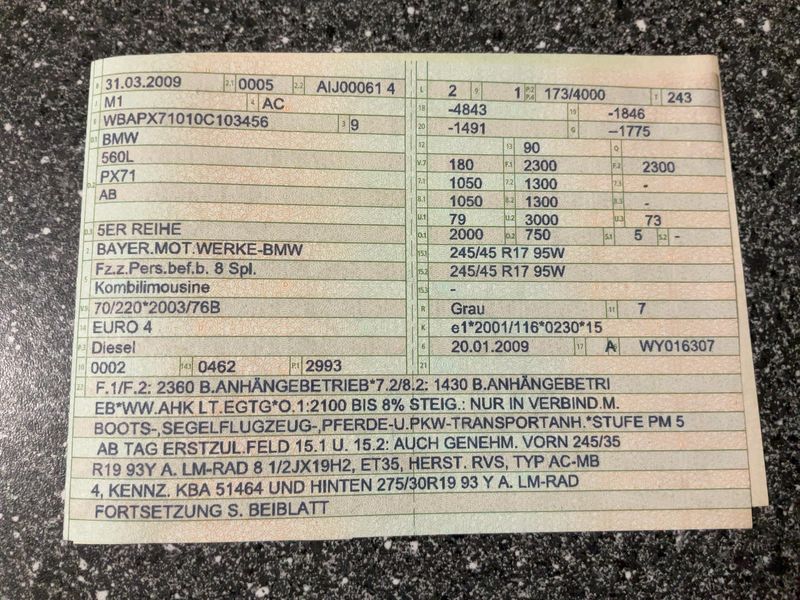 B 31.03.2009 2.1 0005 2.2 AIJ00061 4
J M1 4 AC
E WBAPX71010C103456 3 9
D.1 BMW
560L
D.2 PX71
AB
D.3 5ER REIHE
2 BAYER.MOT.WERKE-BMW
5 Fz.z.Pers.bef.b. 8 Spl.
Kombilimousine
V.9 70/220*2003/76B
14 EURO 4
P.3 Diesel
10 0002 14.1 0462 P.1 2993
L 2 9 1 P.2 P.4 173/4000 T 243
18 -4843 19 -1846
20 -1491 G --1775
12 13 90 Q
V.7 180 F.1 2300 F.2 2300
7.1 1050 7.2 1300 7.3 -
8.1 1050 8.2 1300 8.3 -
U.1 79 U.2 3000 U.3 73
O.1 2000 O.2 750 S.1 5 S.2 -
15.1 245/45 R17 95W
15.2 245/45 R17 95W
15.3 -
R Grau 11 7
K e1*2001/116*0230*15
6 20.01.2009 17 A 16 WY016307
21
22 F.1/F.2: 2360 B.ANHÄNGEBETRIEB*7.2/8.2: 1430 B.ANHÄNGEBETRI
EB*WW.AHK LT.EGTG*O.1:2100 BIS 8% STEIG.: NUR IN VERBIND.M.
BOOTS-,SEGELFLUGZEUG-,PFERDE-U.PKW-TRANSPORTANH.*STUFE PM 5
AB TAG ERSTZUL.FELD 15.1 U. 15.2: AUCH GENEHM. VORN 245/35
R19 93Y A. LM-RAD 8 1/2JX19H2, ET35, HERST. RVS, TYP AC-MB
4, KENNZ. KBA 51464 UND HINTEN 275/30R19 93 Y A. LM-RAD
FORTSETZUNG S. BEIBLATT